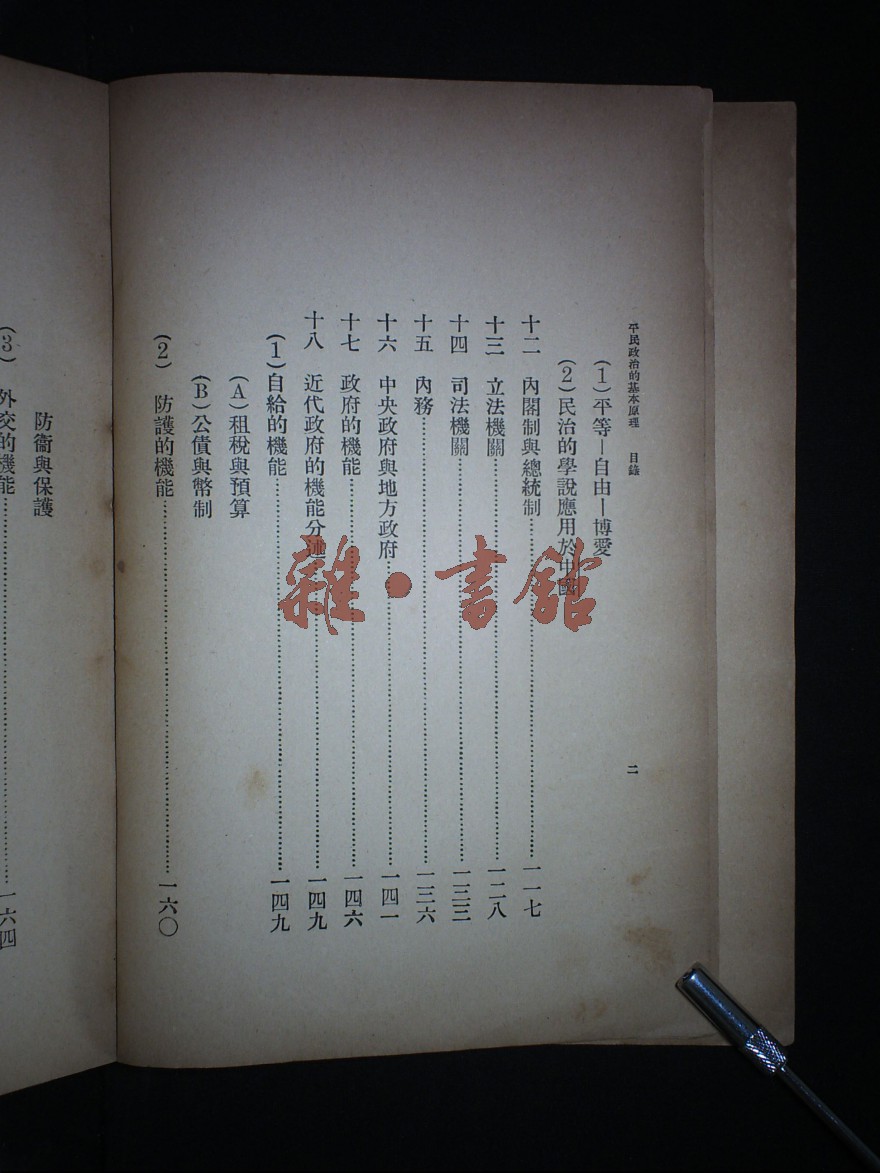 平民政治的基本原理 目錄 二
(1)平等—自由—博愛
(2)民治的學說應用於中國
十二 內閣制與總統制 一一七
十三 立法機關 一二八
十四 司法機關 一三三
十五 內務 一三六
十六 中央政府與地方政府 一四一
十七 政府的機能 一四六
十八 近代政府的機能分 一四九
(1)自給的機能 一四九
(A)租稅與預算
(B)公債與幣制
(2) 防護的機能 一六〇
防衞與保護
(3) 外交的機能 一六四
雜·書館